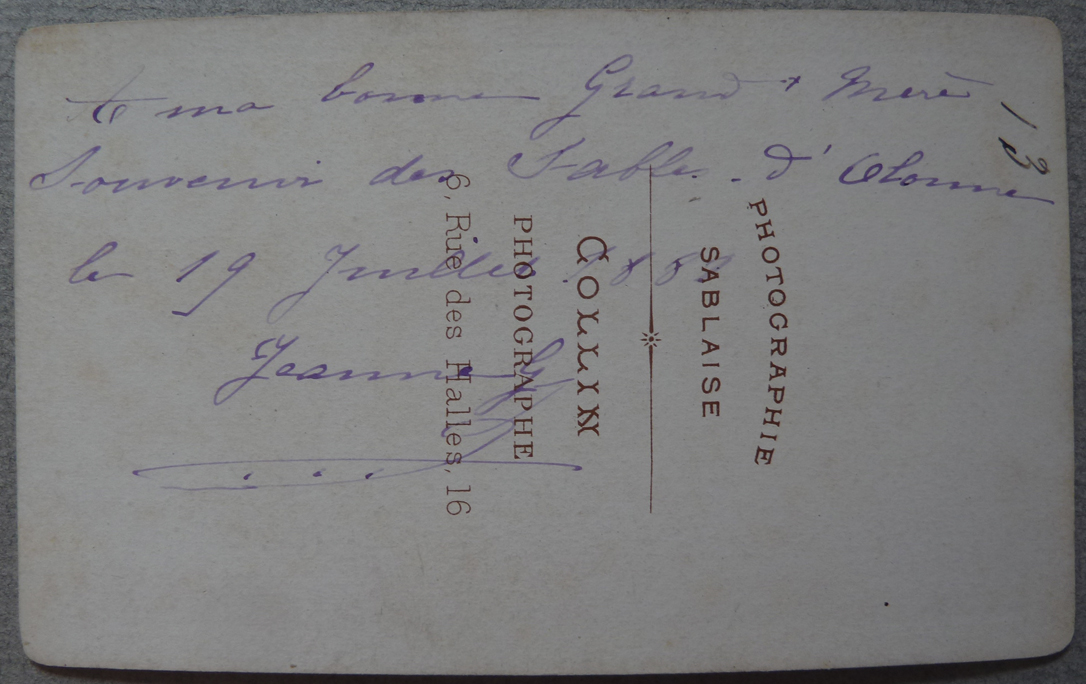 A ma bonne Grand + Mère
Souvenir des Sables - d'Olonne
le 19 Juillet
Jeanne G
13
PHOTOGRAPHIE
SABLAISE
COLLIN
PHOTOGRAPHE
6, Rue des Halles, 16